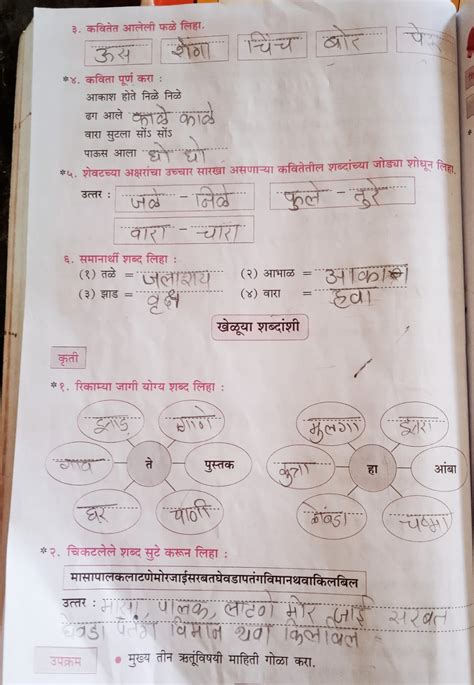 ३. कवितेत आलेली फळे लिहा.
ऊस शेंगा चिंच बोर
*४. कविता पूर्ण करा :
आकाश होते निळे निळे
ढग आले काळे काळे
वारा सुटला सोंऽ सोंऽ
पाऊस आला धो धो
*५. शेवटच्या अक्षरांचा उच्चार सारखा असणाऱ्या कवितेतील शब्दांच्या जोड्या शोधून लिहा.
उत्तर : जळे - निळे फुले - तुरे
वारा - चारा
६. समानार्थी शब्द लिहा :
(१) तळे = जलाशय (२) आभाळ = आकाश
(३) झाड = वृक्ष (४) वारा = हवा
खेळूया शब्दांशी
कृती
*१. रिकाम्या जागी योग्य शब्द लिहा :
झाड गाणे मुलगा झरा
गाव ते पुस्तक कुत्रा हा आंबा
घर पाणी चष्मा
*२. चिकटलेले शब्द सुटे करून लिहा :
मासापालकलाटणेमोरजाईसरबतघेवडापतंगविमानथवाकिलबिल
उत्तर : मासा, पालक, लाटणे मोर जाई सरबत
घेवडा पतंग विमान थवा किलबिल
उपक्रम • मुख्य तीन ऋतूंविषयी माहिती गोळा करा.